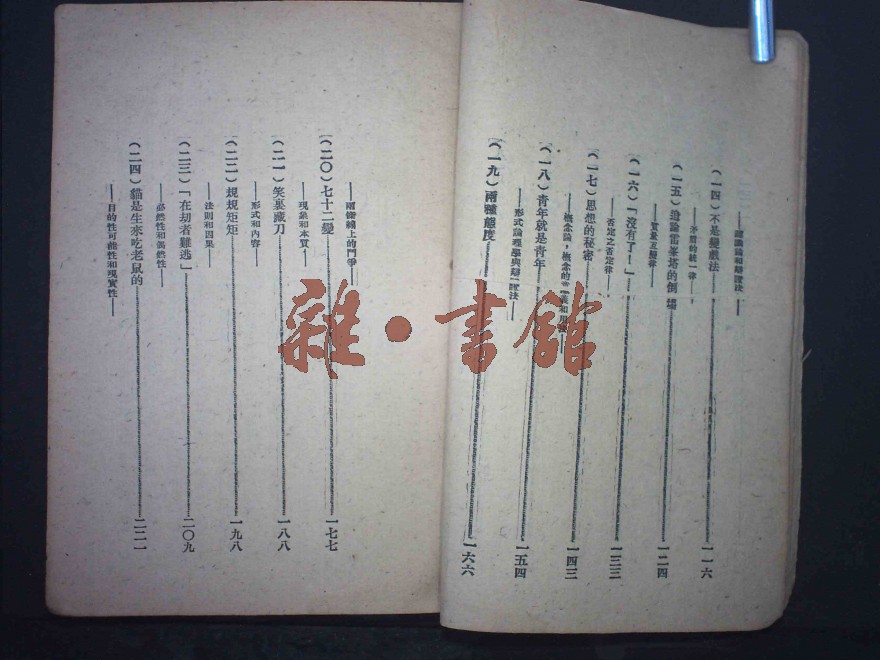 ——認識論和辯證法——
(一四)不是變戲法 一一六
——矛盾的統一律——
(一五)追論雷峯塔的倒塌 一二四
——質量互變律——
(一六)「沒有了!」 一三三
——否定之否定律——
(一七)思想的秘密 一四三
——概念論,概念的
(一八)青年就是青年 一五四
——形式論理學與辯證法——
(一九)兩種態度 一六六
——兩條線上的鬥爭——
(二〇)七十二變 一七七
——現象和本質——
(二一)笑裏藏刀 一八八
——形式和內容——
(二二)規規矩矩 一九八
——法則和因果——
(二三)「在劫者難逃」 二〇九
——必然性和偶然性——
(二四)貓是生來吃老鼠的 二二一
——目的性可能性和現實性——
雜·書館